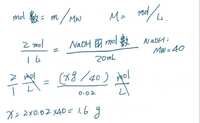 mol 數 = m / MW   M = mol / L
2 mol / 1 L = NaOH 的 mol 數 / 20 mL   NaOH: MW = 40
2 / 1 mol / L = (x g / 40) / 0.02 mol / L
x = 2x0.02x40 = 1.6 g